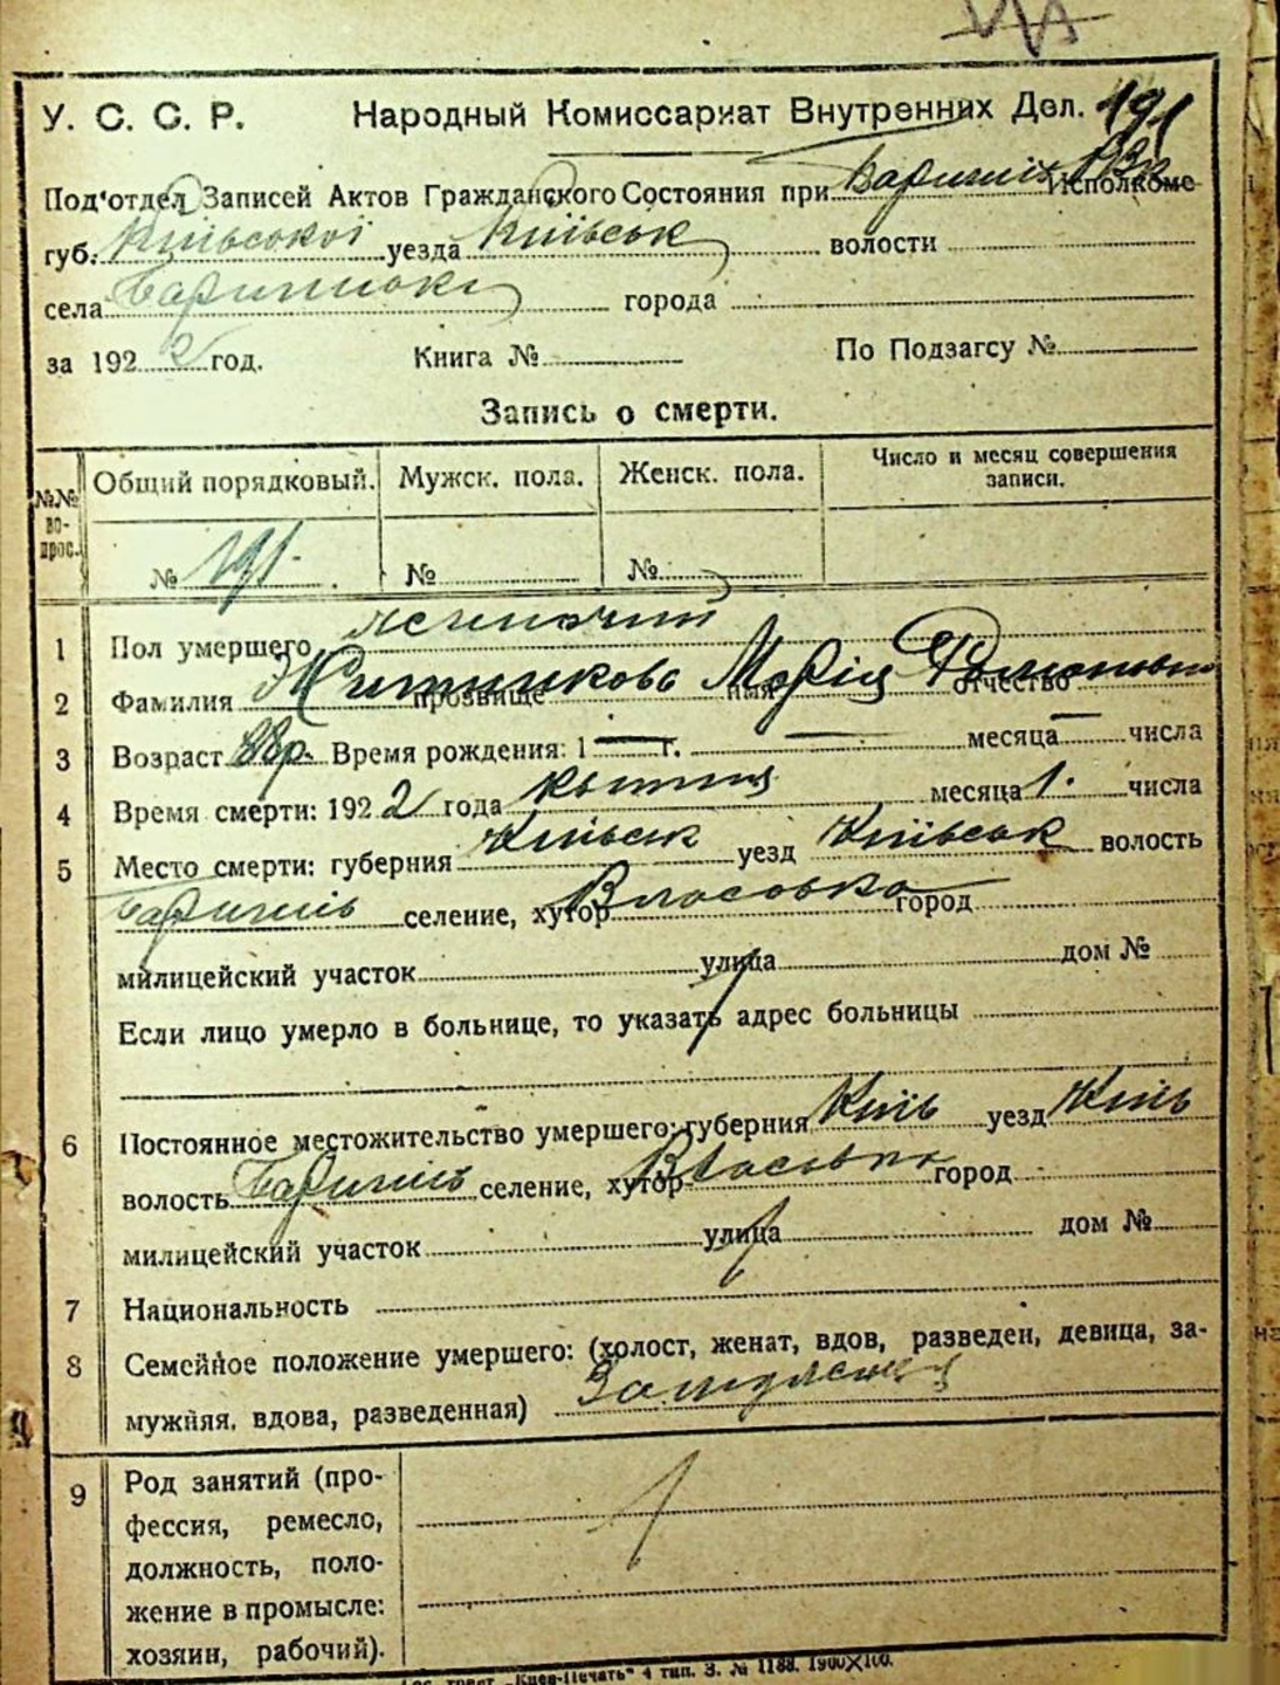 У. С. С. Р. Народный Комиссариат Внутренних Дел. 191
Под'отдел Записей Актов Гражданского Состояния при Исполкоме
губ. Київської уезда Київськ волости
села города
за 1922 год. Книга № По Подзагсу №
Запись о смерти.
№№ вопрос. Общий порядковый. Мужск. пола. Женск. пола. Число и месяц совершения записи.
№ 191 № №
1 Пол умершего жіночий
2 Фамилия прозвище Марія имя отчество
3 Возраст 88р. Время рождения: 1 — г. — месяца — числа
4 Время смерти: 1922 года квітня месяца 1. числа
5 Место смерти: губерния Київськ уезд Київськ волость
селение, хутор Власовка город
милицейский участок улица дом №
Если лицо умерло в больнице, то указать адрес больницы
6 Постоянное местожительство умершего: губерния Київ уезд Київ
волость селение, хутор Власовка город
милицейский участок улица дом №
7 Национальность
8 Семейное положение умершего: (холост, женат, вдов, разведен, девица, за-
мужняя, вдова, разведенная) Замужня
9 Род занятий (про-
фессия, ремесло,
должность, поло-
жение в промысле:
хозяин, рабочий).
трест „Киев-Печать" 4 тип. З. № 1188. 1900×100.